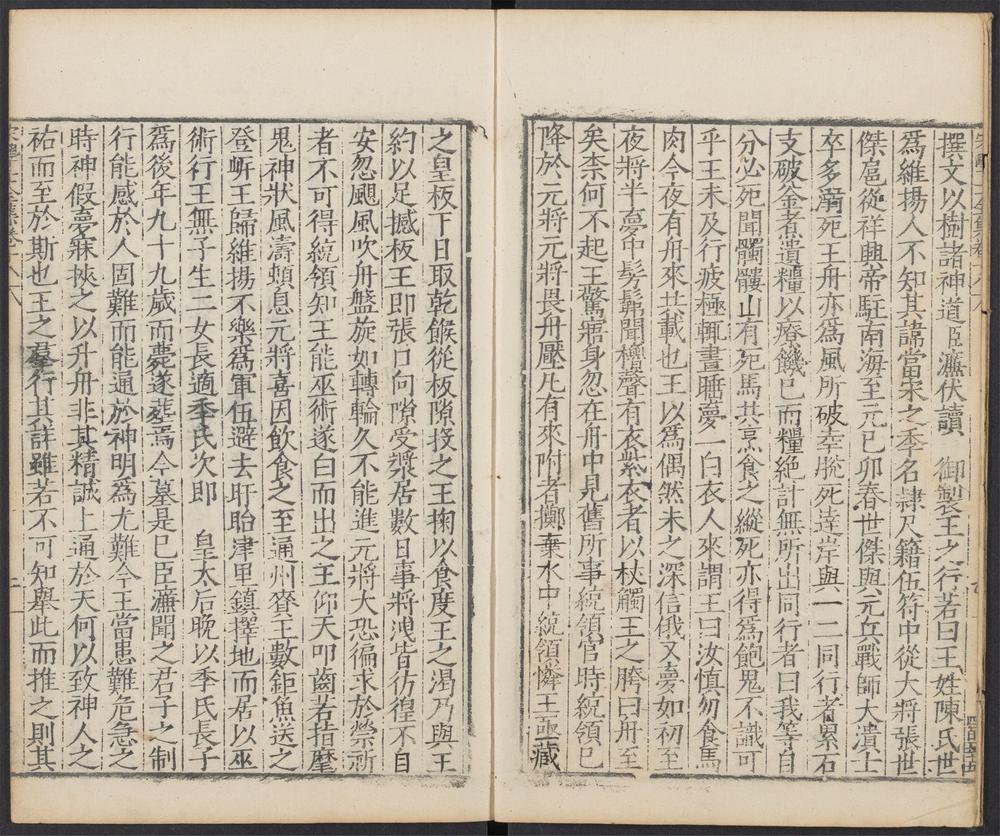 撰文以樹諸神道臣濂伏讀　御製王之行若曰王姓陳氏世
爲維揚人不知其諱當宋之季名隸尺籍伍符中從大將張世
傑扈從祥興帝駐南海至元己卯春世傑與元兵戰師大潰士
卒多溺死王舟亦爲風所破幸脫死達岸與一二同行者累石
支破釜煮遺糧以療饑已而糧絕計無所出同行者曰我等自
分必死聞髑髏山有死馬共烹食之縱死亦得爲飽鬼不識可
乎王未及行疲極輒晝睡夢一白衣人來謂王曰汝慎勿食馬
肉今夜有舟來共載也王以爲偶然未之深信俄又夢如初至
夜將半夢中髣髴聞櫓聲有衣紫衣者以杖觸王之胯曰舟至
矣柰何不起王驚寤身忽在舟中見舊所事統領官時統領已
降於元將元將畏舟壓凡有來附者擲棄水中統領憐王亟藏
之皇板下日取乾餱從板隙投之王掬以食度王之渴乃與王
約以足撼板王即張口向隙受漿居數日事將洩皆彷徨不自
安忽颶風吹舟盤旋如轉輪久不能進元將大恐徧求於禜祈
者不可得統領知王能巫術遂白而出之王仰天叩齒若指麾
鬼神狀風濤頓息元將喜因飲食之至通州賚王數鉅魚送之
登岍王歸維揚不樂爲軍伍避去盱眙津里鎮擇地而居以巫
術行王無子生二女長適季氏次即　皇太后晚以季氏長子
爲後年九十九歲而薨遂葬焉今墓是已臣濂聞之君子之制
行能感於人固難而能通於神明爲尤難今王當患難危急之
時神假夢寐挾之以升舟非其精誠上通於天何以致神人之
祐而至於斯也王之羣行其詳雖若不可知舉此而推之則其